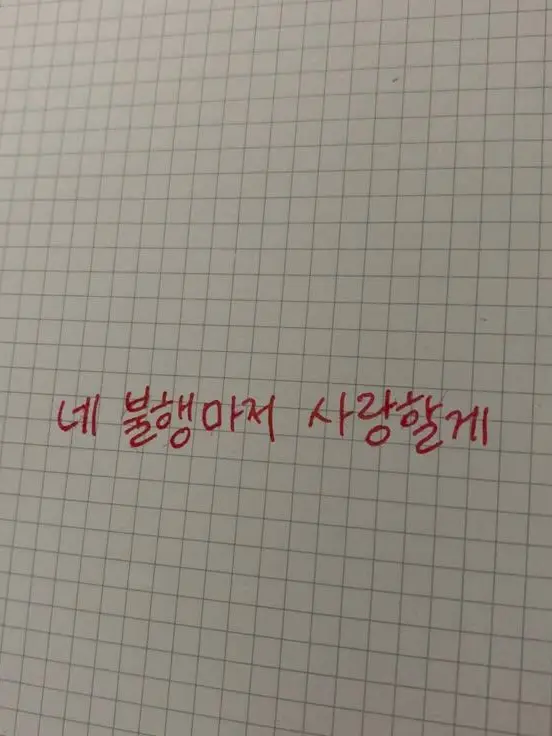 네 불행마저 사랑할게